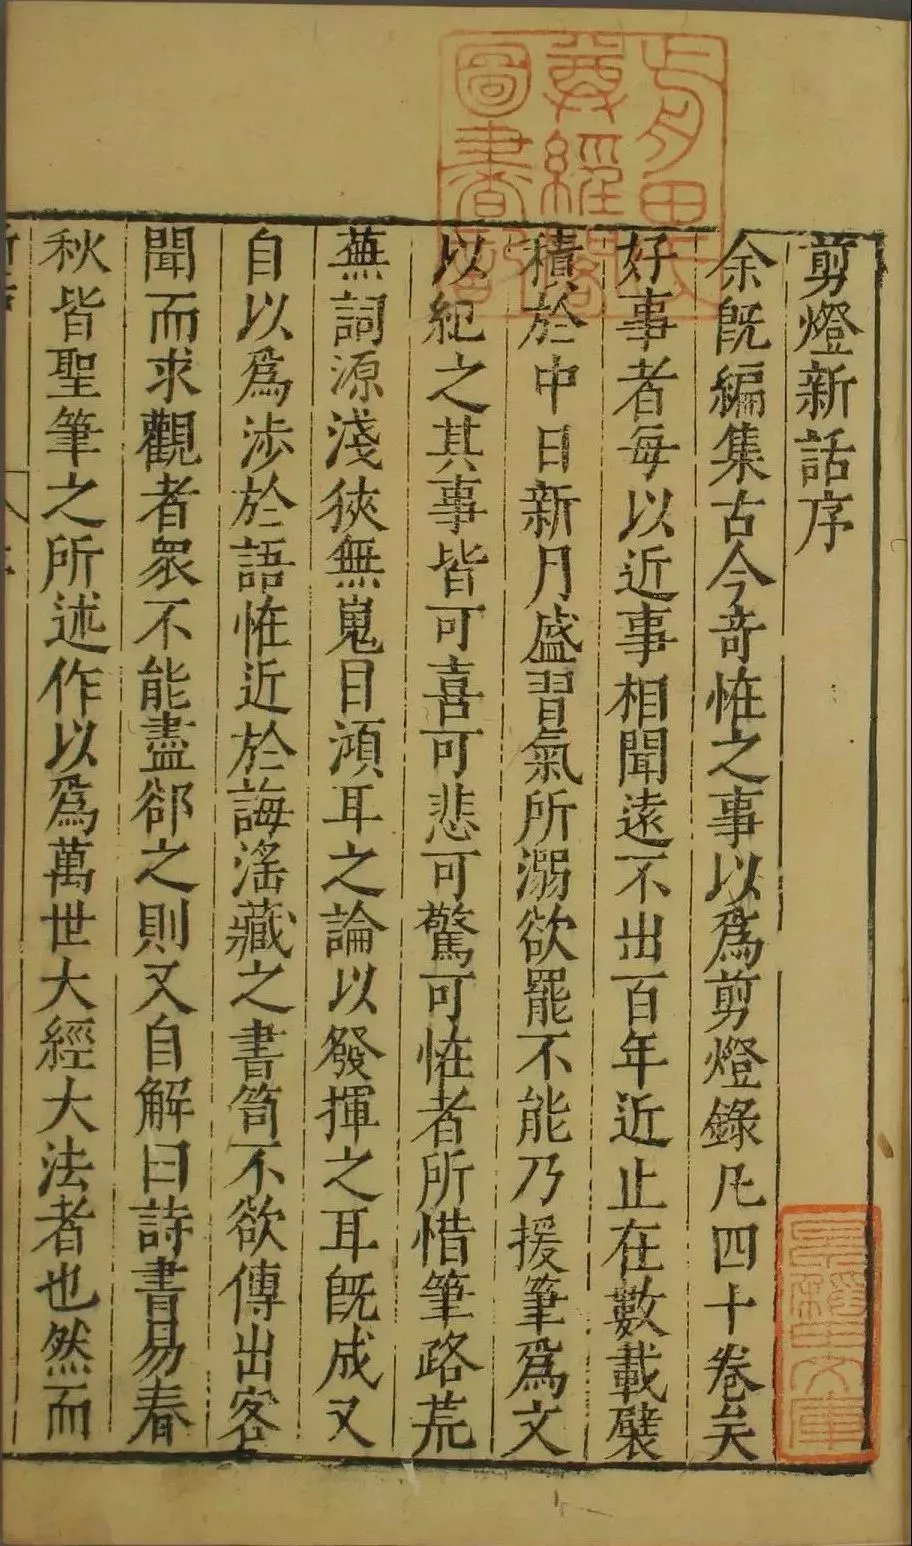 剪燈新話序
余旣編集古今奇恠之事以爲剪燈錄凡四十卷矣
好事者每以近事相聞遠不出百年近止在數載襞
積於中日新月盛習氣所溺欲罷不能乃援筆爲文
以紀之其事皆可喜可悲可驚可恠者所惜筆路荒
蕪詞源淺狹無嵬目澒耳之論以發揮之耳旣成又
自以爲涉於語恠近於誨滛藏之書笥不欲傳出客
聞而求觀者衆不能盡郤之則又自解曰詩書易春
秋皆聖筆之所述作以爲萬世大經大法者也然而
尊經閣
圖書
文庫